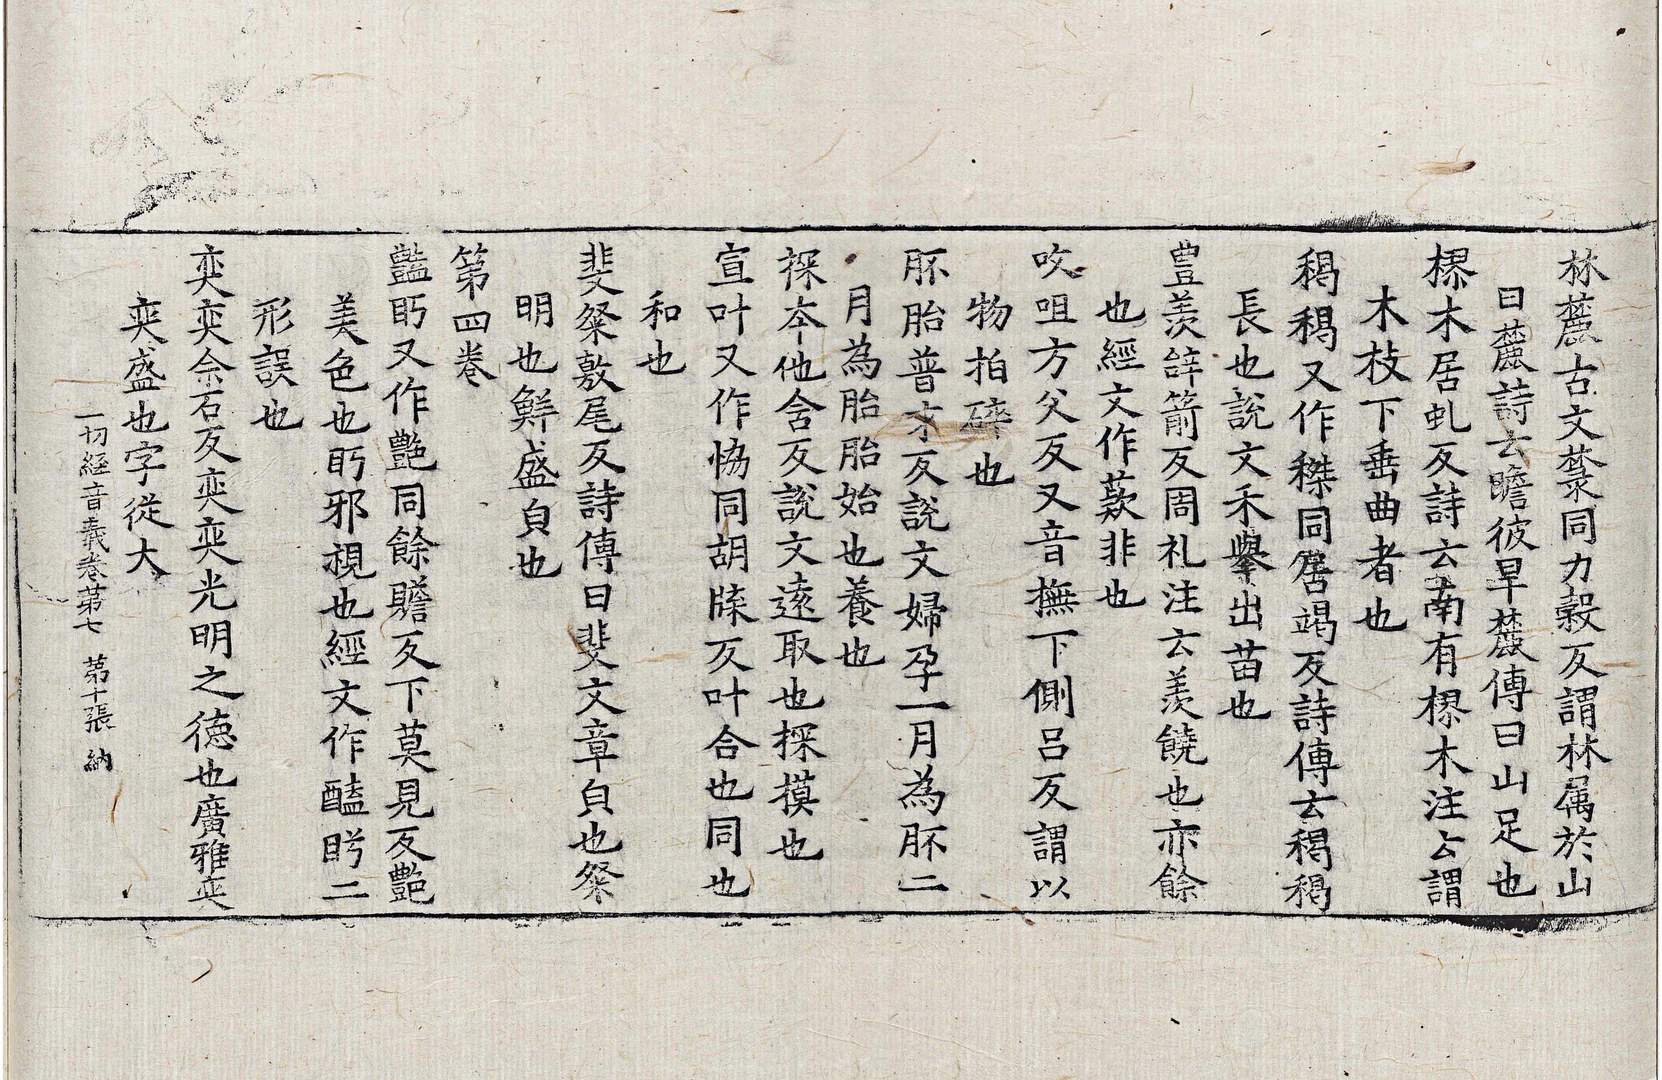 林麓古文䕞同力穀反謂林属於山
曰麓詩云瞻彼旱麓傳曰山足也
樛木居虬反詩云南有樛木注云謂
木枝下垂曲者也
稠稠又作榤同
長也説文禾擧出苗也
豊羨辝箭反周礼注云羨饒也亦餘
也經文作羡非也
㕮咀方父反又音撫下側吕反謂以
物拍碎也
胚胎普才反説文婦孕一月為胚二
月為胎胎始也養也
探夲他含反説文遠取也探摸也
宣叶又作恊同胡牒反叶合也同也
和也
斐粲敷尾反詩傳曰斐文章皃也粲
明也鮮盛皃也
第四卷
豔眄又作艶同餘贍反下莫見反艶
美色也眄邪視也經文作醘眄二
形誤也
奕奕余石反奕奕光明之徳也廣雅奕
奕盛也字從大
一切經音義卷苐七 苐十張 納